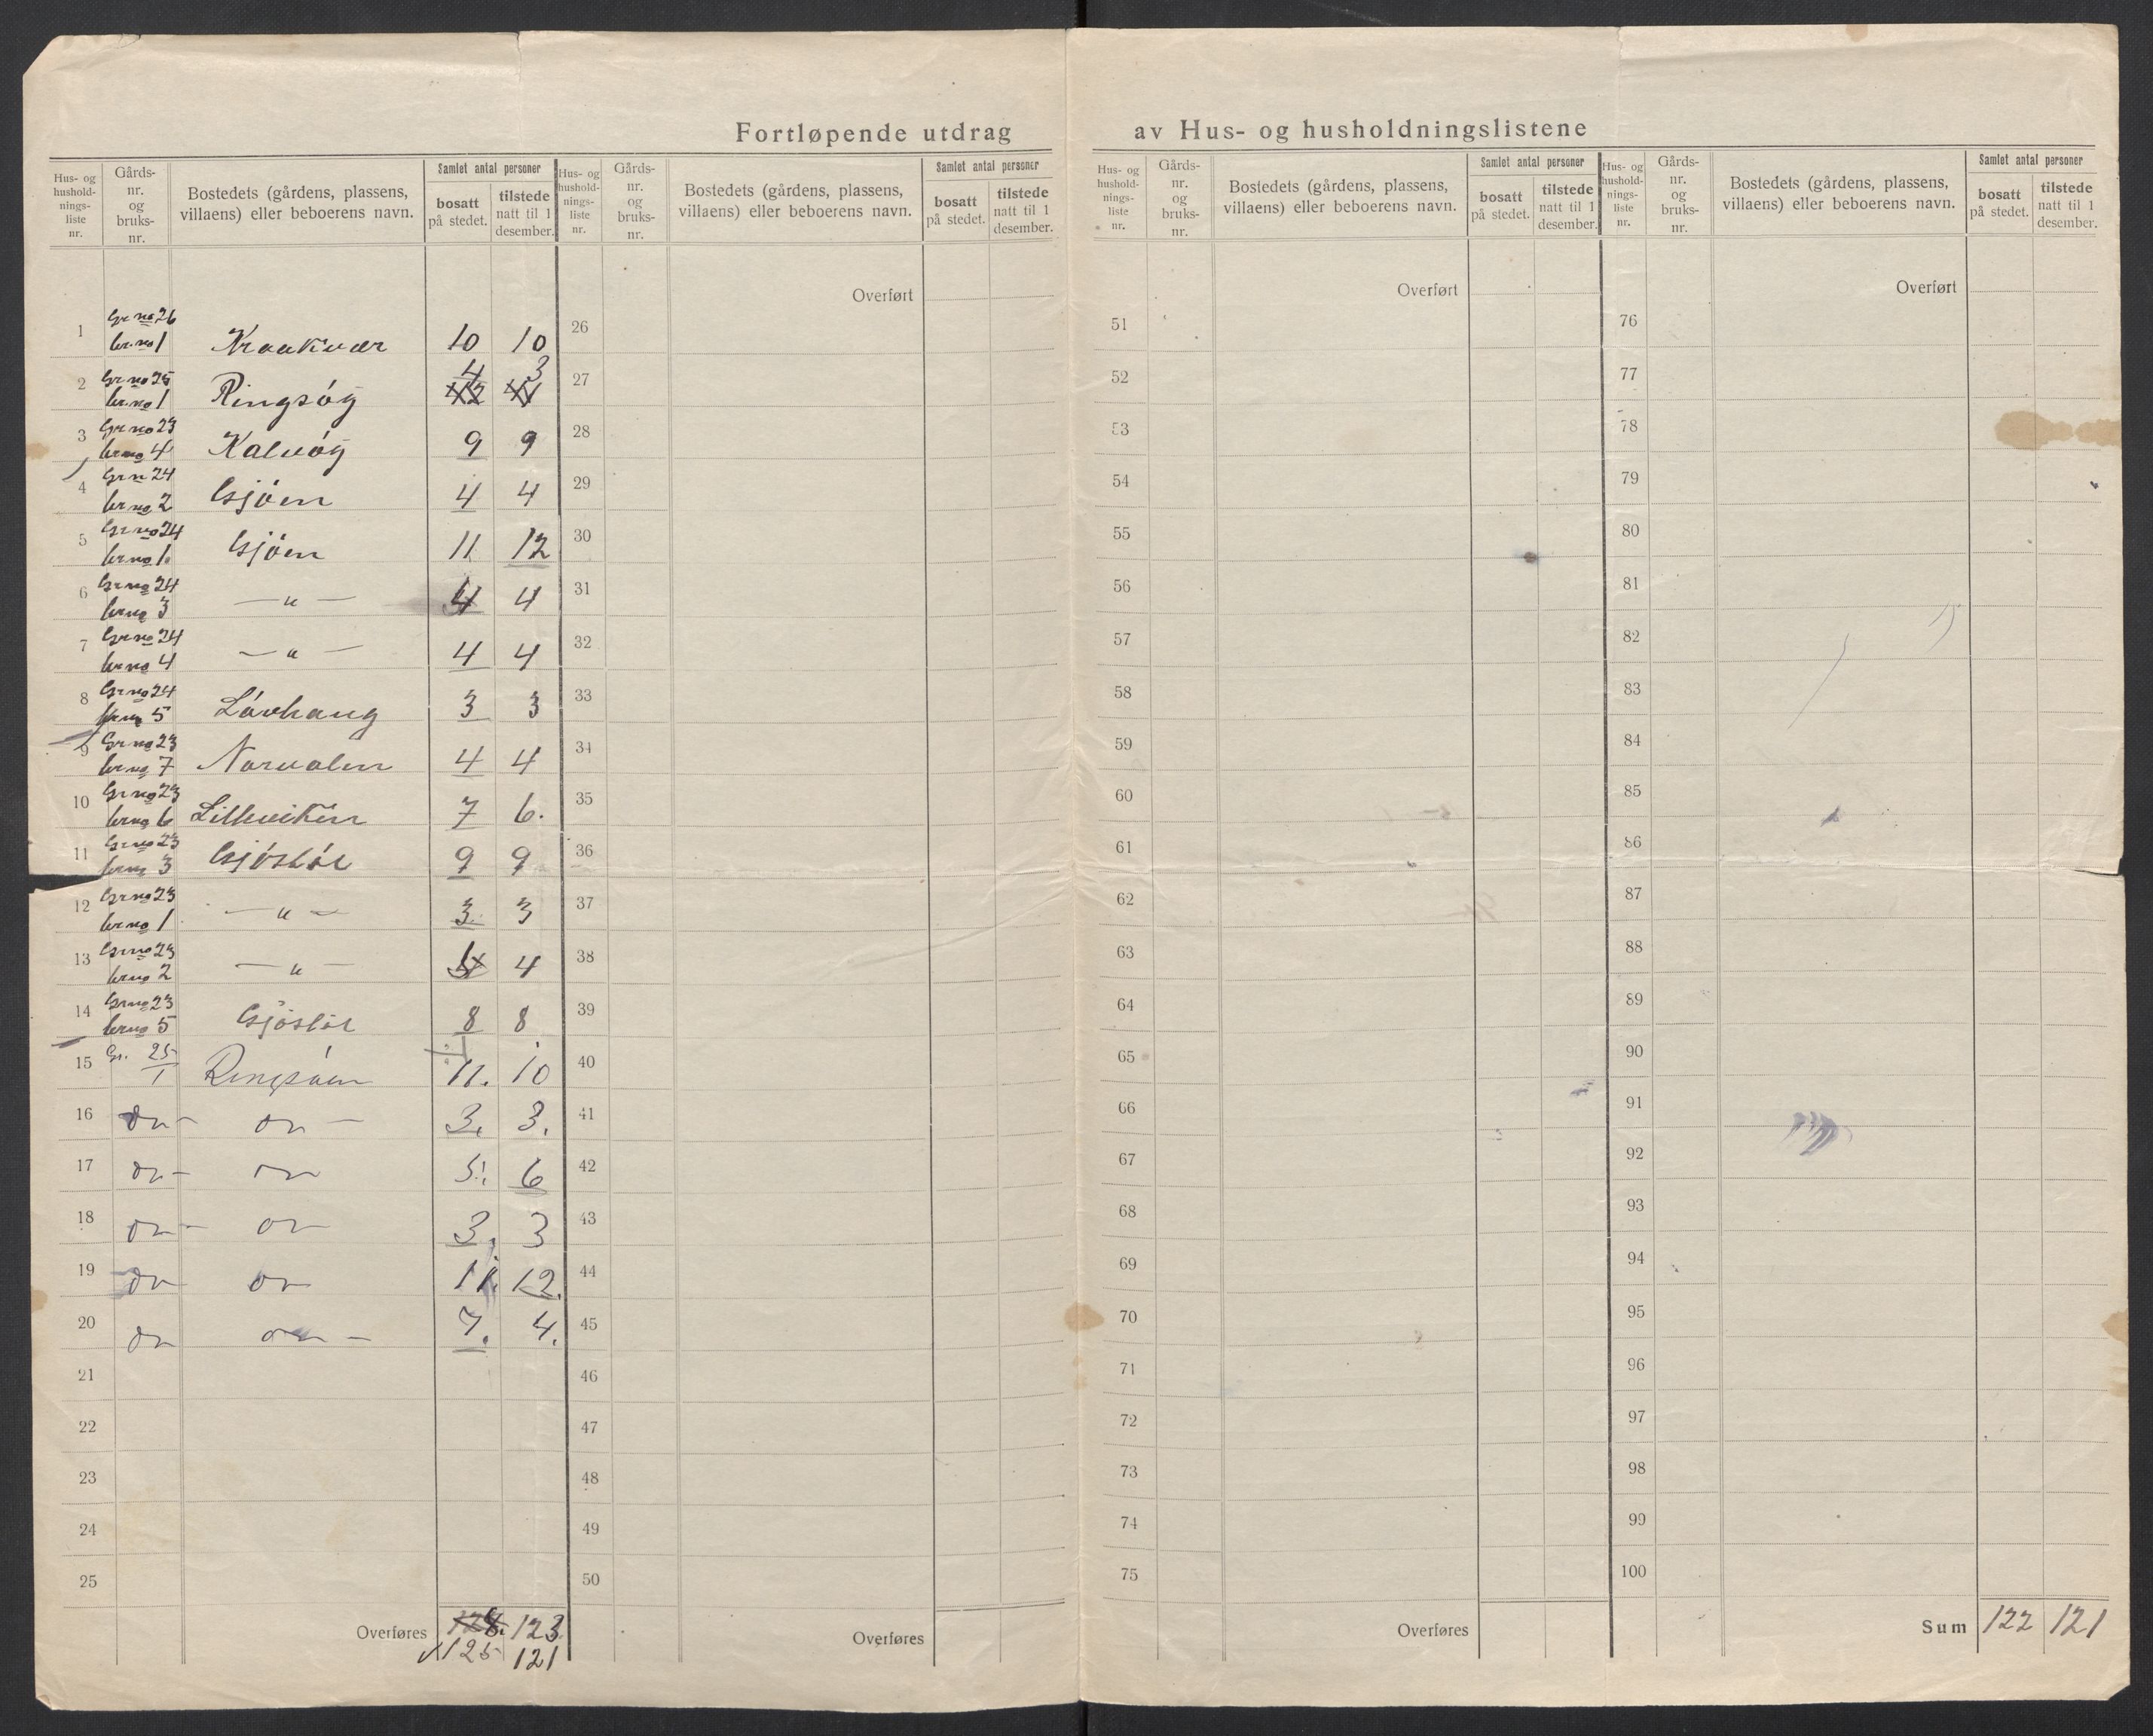 Fortløpende utdrag av Hus- og husholdningslistene
Hus- og hushold-nings-liste nr. Gårds-nr. og bruks-nr. Bostedets (gårdens, plassens, villaens) eller beboerens navn. Samlet antal personer bosatt på stedet. tilstede natt til 1 desember.
Hus- og hushold-nings-liste nr. Gårds-nr. og bruks-nr. Bostedets (gårdens, plassens, villaens) eller beboerens navn. Samlet antal personer bosatt på stedet. tilstede natt til 1 desember.
Hus- og hushold-nings-liste nr. Gårds-nr. og bruks-nr. Bostedets (gårdens, plassens, villaens) eller beboerens navn. Samlet antal personer bosatt på stedet. tilstede natt til 1 desember.
Hus- og hushold-nings-liste nr. Gårds-nr. og bruks-nr. Bostedets (gårdens, plassens, villaens) eller beboerens navn. Samlet antal personer bosatt på stedet. tilstede natt til 1 desember.
Overført Overført Overført
1 Gr no 26 br.no 1 Kraakvær 10 10
2 Gr no 25 br.no 1 Ringsög 4 3
3 Gr no 23 br no 4 Kalvög 9 9
4 Gr n 24 br no 2 Gjöen 4 4
5 Gr no 24 br no 1. Gjöen 11 12
6 Gr no 24 br no 3 — " — 4 4
7 Gr no 24 br no 4 — " — 4 4
8 Gr no 24 br no 5 Lövhaug 3 3
9 Gr no 23 br no 7 Norvalen 4 4
10 Gr no 23 br no 6 Lilleviken 7 6.
11 Gr no 23 br no 3 9 9
12 Gr no 23 br no 1 — " — 3 3
13 Gr no 23 br no 2 — " — 4
14 Gr no 23 br no 5 8 8
15 Gr. 25/1 Ringsöen 11. 10
16 on - on - 3. 3.
17 on - on 5. 6
18 on - on 3. 3
19 on on 11. 12.
20 on on - 7. 4.
21
22
23
24
25
Overføres 128. 123.
125 121
26
27
28
29
30
31
32
33
34
35
36
37
38
39
40
41
42
43
44
45
46
47
48
49
50
Overføres
51
52
53
54
55
56
57
58
59
60
61
62
63
64
65
66
67
68
69
70
71
72
73
74
75
Overføres
76
77
78
79
80
81
82
83
84
85
86
87
88
89
90
91
92
93
94
95
96
97
98
99
100
Sum 122 121